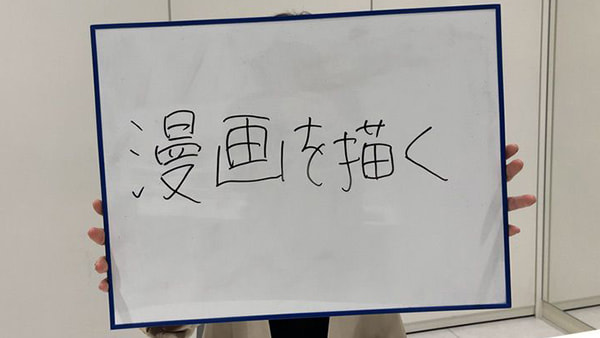 漫画を描く